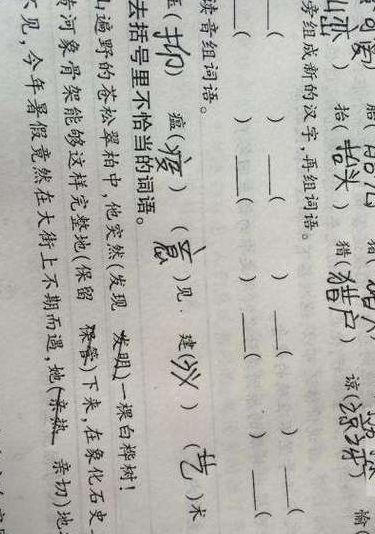 可爱) 胎(
山峦) 抬(抬头) 猎(猎户) 谅(
旁组成新的汉字,再组词语。
___( ) ___( ) ___( ) ___(
___( ) ___( ) ___( ) ___(
读音组词语。
(抑) 瘟(疫) (意)见 建(议) (艺)术
去括号里不恰当的词语。
遍野的苍松翠柏中,他突然(发现 发明)一棵白桦树!
河象骨架能够这样完整地(保留 保管)下来,在象化石史
不见,今年暑假竟然在大街上不期而遇,她(亲热 亲切)地